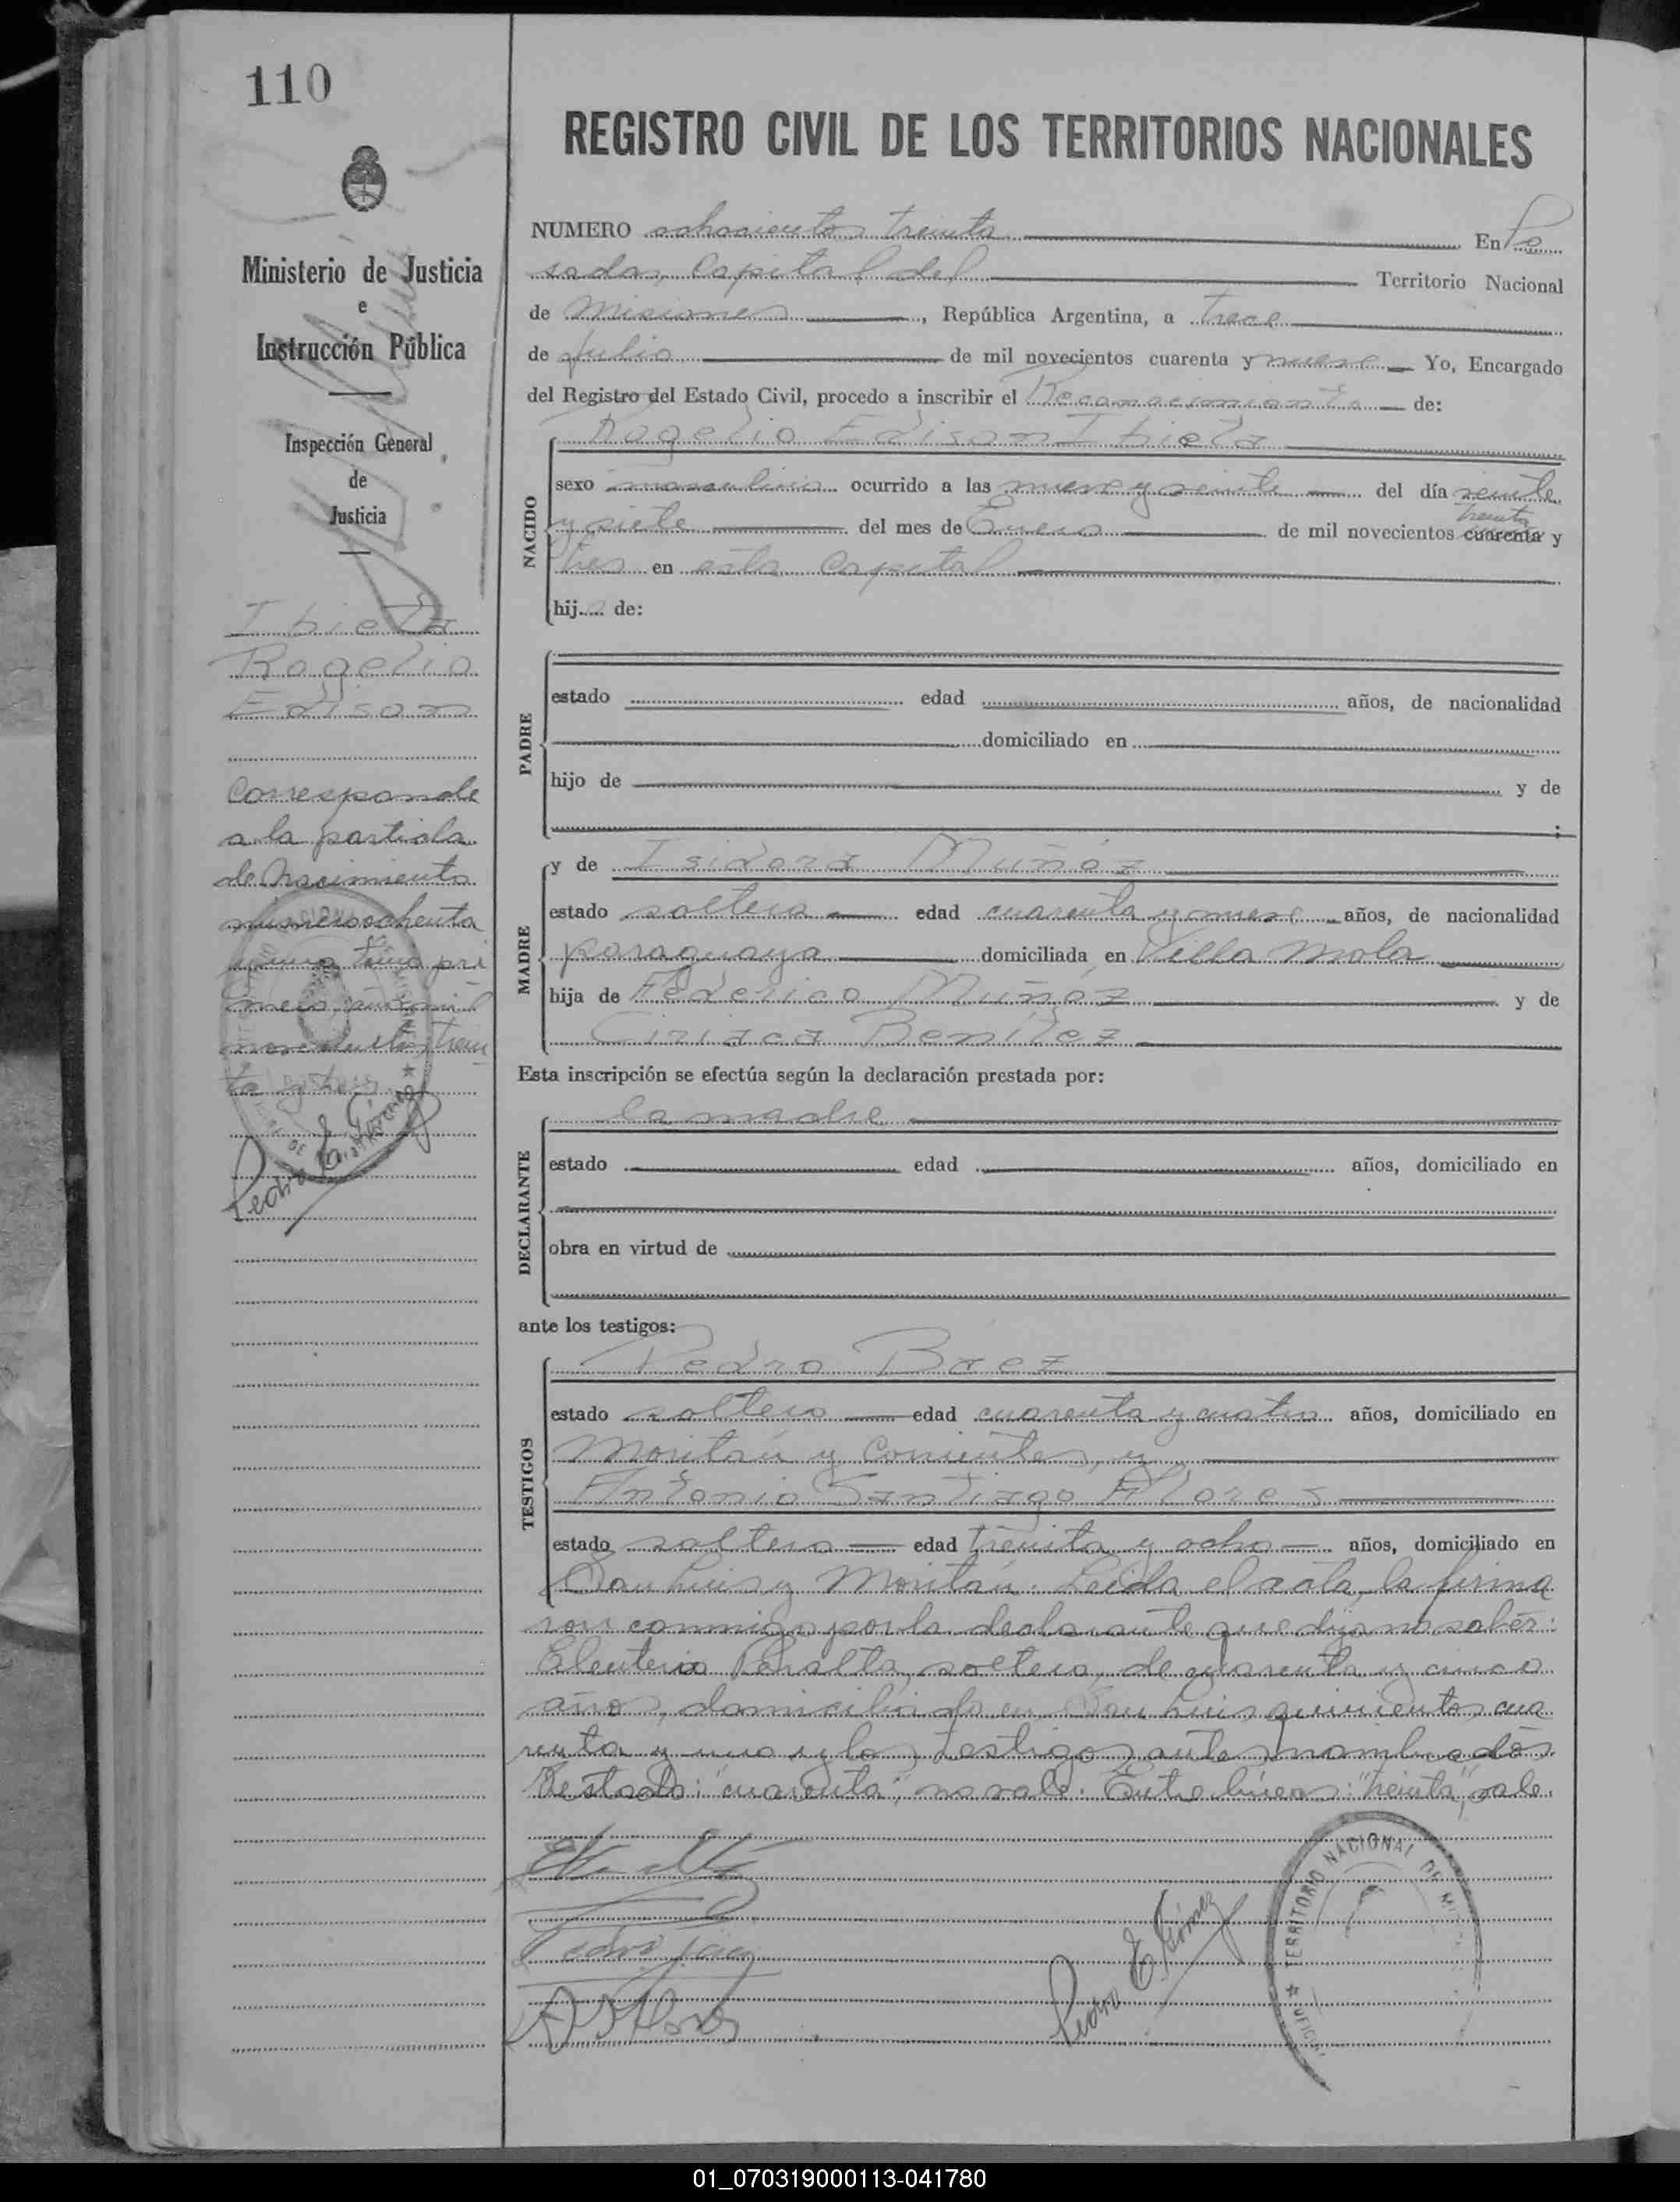 110
Ministerio de Justicia
e
Instrucción Pública
Inspección General
de
Justicia
Ibieta
Rogelio
Edison
Corresponde
a la partida
de Nacimiento
número ochenta
y uno tomo pri
mero, año mil
novecientos trein
ta y tres
Pedro E. Gómez
REGISTRO CIVIL DE LOS TERRITORIOS NACIONALES
NUMERO ochocientos treinta En Po
sadas, Capital del Territorio Nacional
de Misiones, República Argentina, a trece
de Julio de mil novecientos cuarenta y nueve Yo, Encargado
del Registro del Estado Civil, procedo a inscribir el Reconocimiento de:
NACIDO
Rogelio Edison Ibieta
sexo masculino ocurrido a las nueve y veinte del día veinte
treinta
y siete del mes de Enero de mil novecientos cuarenta y
tres en esta Capital
hijo de:
PADRE
estado edad años, de nacionalidad
domiciliado en
hijo de y de
;
MADRE
y de Isidora Muñóz
estado soltera edad cuarenta y nueve años, de nacionalidad
paraguaya domiciliada en Villa Mola
hija de Federico Muñóz y de
Ciriaca Benítez
Esta inscripción se efectúa según la declaración prestada por:
DECLARANTE
la madre
estado edad años, domiciliado en
obra en virtud de
ante los testigos:
TESTIGOS
Pedro Báez
estado soltero edad cuarenta y cuatro años, domiciliado en
Moritán y Corrientes, y
Antonio Santiago Flores
estado soltero edad treinta y ocho años, domiciliado en
San Luis y Moritán. Leída el acta, la firma
ron conmigo, por la declarante que dijo no saber:
Eleuterio Peralta, soltero, de cuarenta y cinco
años, domiciliado en San Luis quinientos cua
renta y uno y los testigos antes nombrados.
Testado: "cuarenta", no vale. Entre líneas: "treinta", vale.
Pedro Báez
A S Flores
Pedro E. Gómez
TERRITORIO NACIONAL DE MI